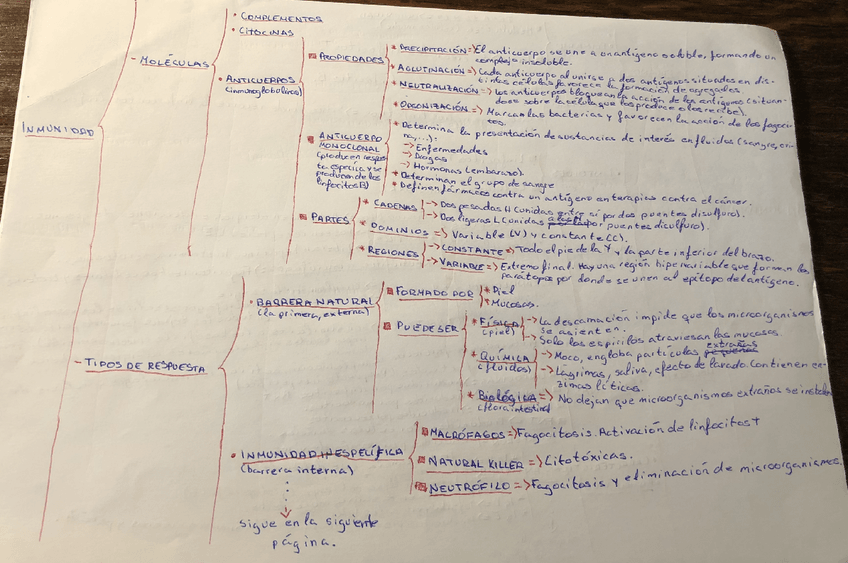 INMUNIDAD
- MOLÉCULAS
• COMPLEMENTOS
• CITOCINAS
• ANTICUERPOS
(inmunoglobulinas)
PROPIEDADES
* PRECIPITACIÓN => El anticuerpo se une a un antígeno soluble, formando un
complejo insoluble.
* AGLUTINACIÓN => Cada anticuerpo al unirse a dos antígenos situados en dis-
tintas células favorece la formación de agregados.
* NEUTRALIZACIÓN => Los anticuerpos bloquean la acción de los antígenos (situan-
dose sobre la célula que los produce o los recibe).
* OPSONIZACIÓN => Marcan las bacterias y favorecen la acción de los fagoci-
tos.
ANTICUERPO
MONOCLONAL
(producen respues
ta específica y se
producen de los
linfocitos B)
* Determina la presentación de sustancias de interés en fluidos (sangre, ori-
na,...):
-> Enfermedades
-> Drogas
-> Hormonas (embarazo).
* Determinan el grupo de sangre
* Definen fármacos contra un antígeno en terapias contra el cáncer.
PARTES
* CADENAS
-> Dos pesadas H (unidas entre sí por dos puentes disulfuro).
-> Dos ligeras L (unidas a las H por puentes disulfuro).
* DOMINIOS => Variable (V) y constante (C).
* REGIONES
-> CONSTANTE => Todo el pie de la Y y la parte inferior del brazo.
-> VARIABLE => Extremo final. Hay una región hipervariable que forman los
parátopos por donde se unen al epítopo del antígeno.
- TIPOS DE RESPUESTA
• BARRERA NATURAL
(la primera, externa)
FORMADO POR
* Piel
* Mucosas.
PUEDE SER
* FÍSICA
(piel)
-> La descamación impide que los microorganismos
se asienten.
-> Solo los espirilos atraviesan las mucosas.
* QUÍMICA
(fluidos)
-> Moco, engloba partículas extrañas
-> Lágrimas, saliva, efecto de lavado. Contienen en-
zimas líticas.
* Biológica
(flora intestinal
-> No dejan que microorganismos extraños se instalen
• INMUNIDAD INESPECÍFICA
(barrera interna)
MACRÓFAGOS => Fagocitosis. Activación de linfocitos T
NATURAL KILLER => Citotóxicas.
NEUTRÓFILO => Fagocitosis y eliminación de microorganismos.
sigue en la siguiente
página.